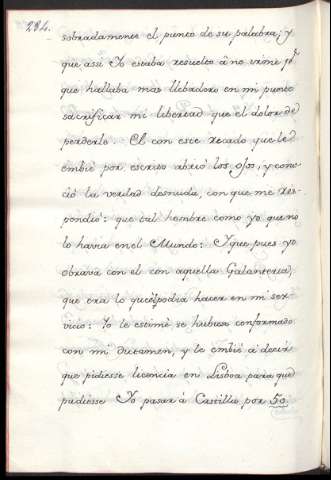 284.
sobradamente el punto de su palabra; y
que assi Yo estaba resuelto â no irme p.r
que hallaba mas llebadero en mi punto
sacrificar mi libertad que el dolor de
perderlo. El con este recado que le
embiè por escrito abriò los ojos, y cono-
ciò la verdad desnuda, con que me res-
pondiò: que tal hombre como yo que no
lo havia en el Mundo: Y que pues yo
obrava con el con aquella Galanteria,
que era lo que èl podia hacer en mi ser-
vicio: Yo le estimè se hubiese conformado
con mi dictamen, y le embiè a decir
que pidiesse licencia en Lisboa para que
pudiesse Yo pasar á Castilla por 50